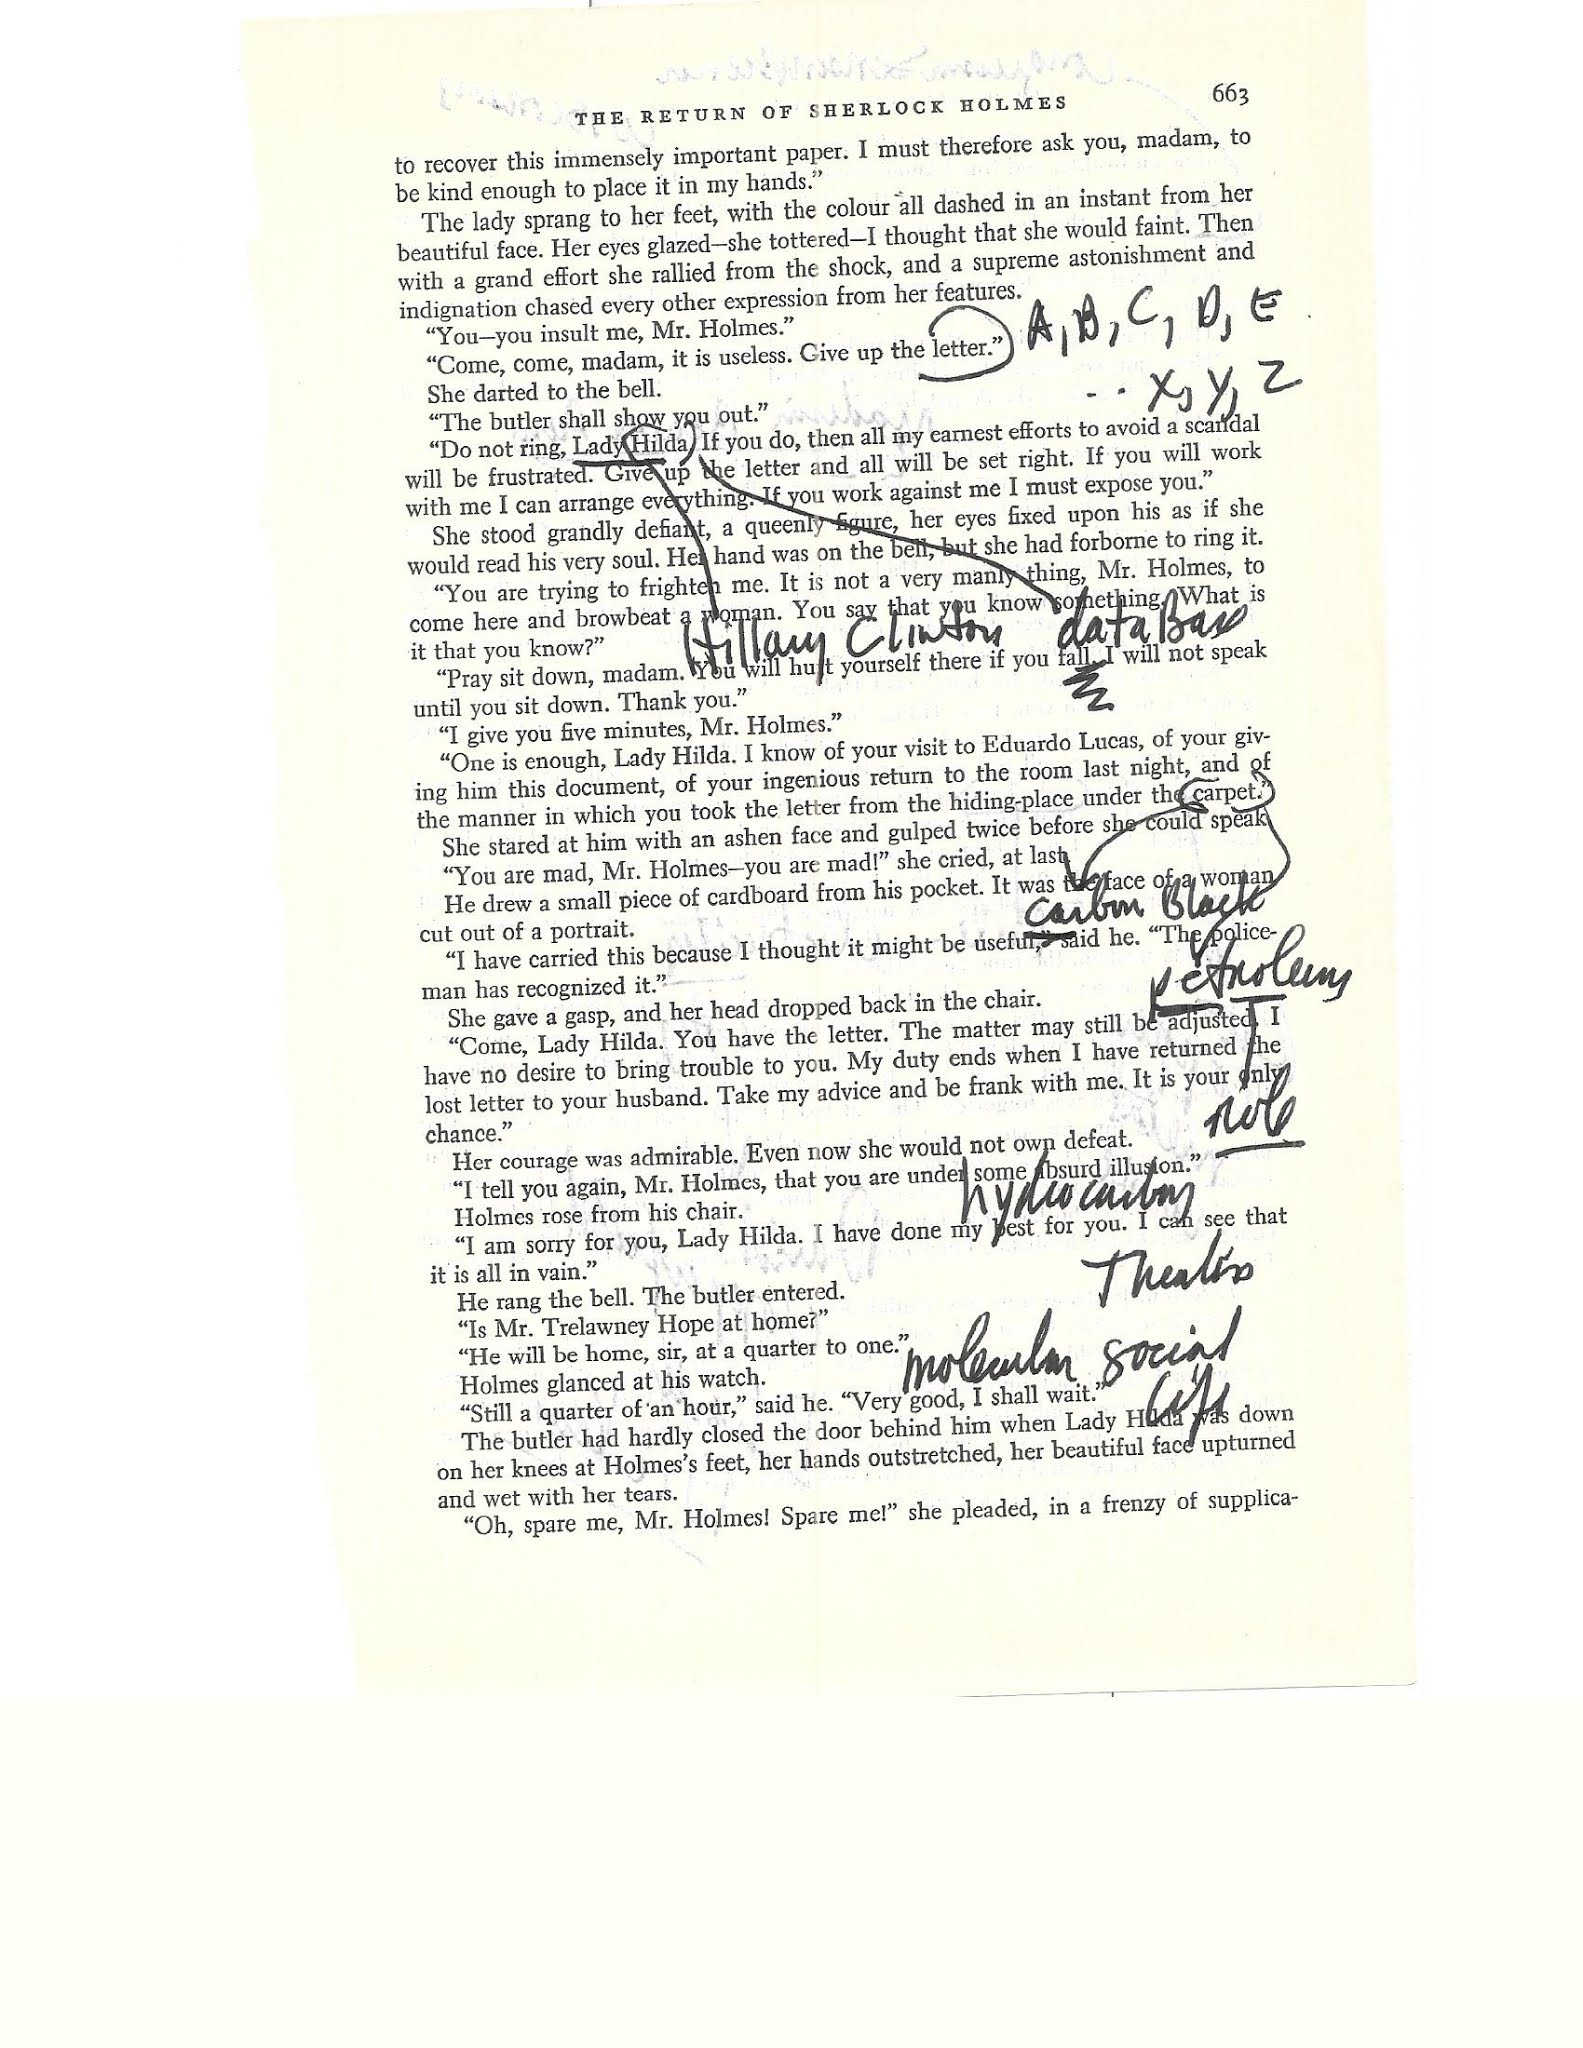 THE RETURN OF SHERLOCK HOLMES 663
to recover this immensely important paper. I must therefore ask you, madam, to
be kind enough to place it in my hands.”
The lady sprang to her feet, with the colour all dashed in an instant from her
beautiful face. Her eyes glazed—she tottered—I thought that she would faint. Then
with a grand effort she rallied from the shock, and a supreme astonishment and
indignation chased every other expression from her features.
“You—you insult me, Mr. Holmes.”
A, B, C, D, E
“Come, come, madam, it is useless. Give up the letter.”
She darted to the bell.
.. X, Y, Z
“The butler shall show you out.”
“Do not ring, Lady Hilda. If you do, then all my earnest efforts to avoid a scandal
will be frustrated. Give up the letter and all will be set right. If you will work
with me I can arrange everything. If you work against me I must expose you.”
She stood grandly defiant, a queenly figure, her eyes fixed upon his as if she
would read his very soul. Her hand was on the bell, but she had forborne to ring it.
“You are trying to frighten me. It is not a very manly thing, Mr. Holmes, to
come here and browbeat a woman. You say that you know something. What is
it that you know?”
Hillary Clinton dataBase
“Pray sit down, madam. You will hurt yourself there if you fall. I will not speak
until you sit down. Thank you.”
“I give you five minutes, Mr. Holmes.”
“One is enough, Lady Hilda. I know of your visit to Eduardo Lucas, of your giv-
ing him this document, of your ingenious return to the room last night, and of
the manner in which you took the letter from the hiding-place under the carpet.”
She stared at him with an ashen face and gulped twice before she could speak.
“You are mad, Mr. Holmes—you are mad!” she cried, at last.
He drew a small piece of cardboard from his pocket. It was the face of a woman
cut out of a portrait.
carbon Black
“I have carried this because I thought it might be useful,” said he. “The police-
man has recognized it.”
petroleum
She gave a gasp, and her head dropped back in the chair.
“Come, Lady Hilda. You have the letter. The matter may still be adjusted. I
have no desire to bring trouble to you. My duty ends when I have returned the
lost letter to your husband. Take my advice and be frank with me. It is your only
chance.”
role
Her courage was admirable. Even now she would not own defeat.
“I tell you again, Mr. Holmes, that you are under some absurd illusion.”
hydrocarbon
Holmes rose from his chair.
“I am sorry for you, Lady Hilda. I have done my best for you. I can see that
it is all in vain.”
He rang the bell. The butler entered.
“Is Mr. Trelawney Hope at home?”
“He will be home, sir, at a quarter to one.”
molecular social
Holmes glanced at his watch.
“Still a quarter of an hour,” said he. “Very good, I shall wait.”
life
The butler had hardly closed the door behind him when Lady Hilda was down
on her knees at Holmes’s feet, her hands outstretched, her beautiful face upturned
and wet with her tears.
“Oh, spare me, Mr. Holmes! Spare me!” she pleaded, in a frenzy of supplica-